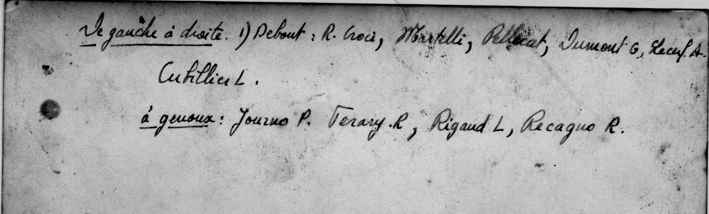 De gauche à droite. 1) Debout : R. Croci, Martelli, Pellecat, Dumont G, Lecuf A.
Cubillier L.
à genoux : Journo P. Terary. R, Rigaud L, Recagno R.